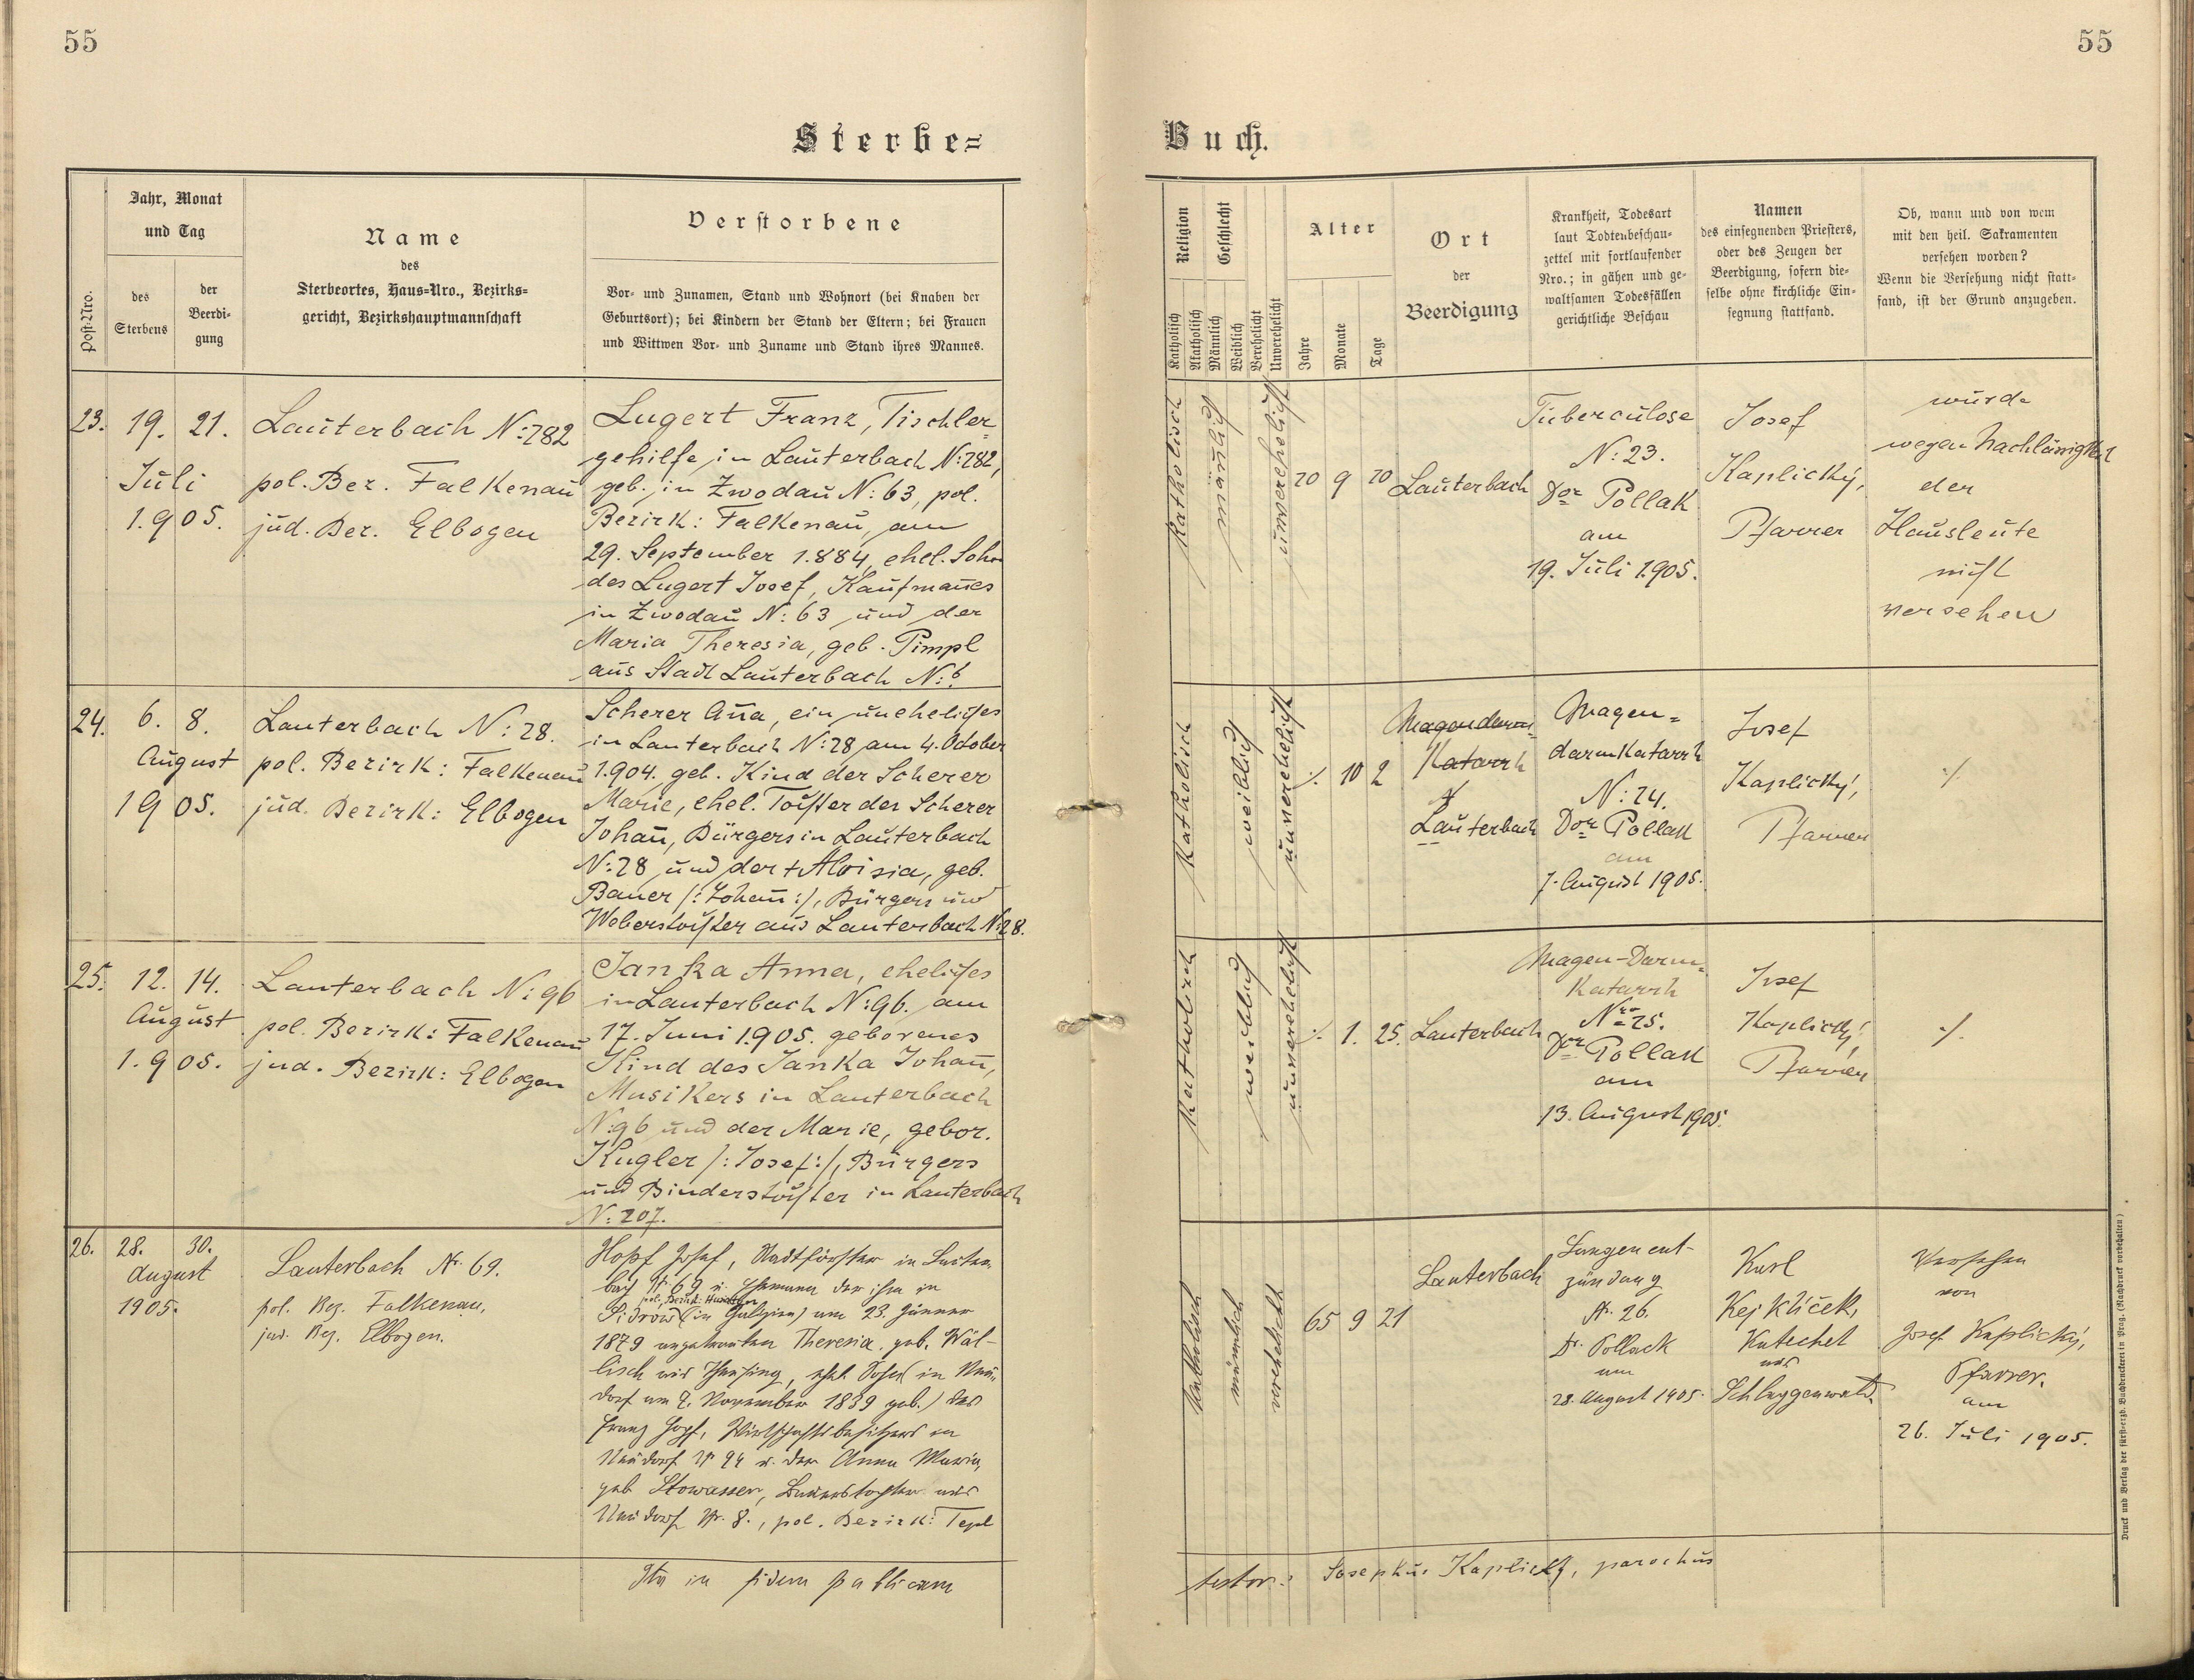 55
55
Sterbe=
Buch.
Post-Nro.
Jahr, Monat
und Tag
des
Sterbens
der
Beerdi-
gung
Name
des
Sterbeortes, Haus-Nro., Bezirks-
gericht, Bezirkshauptmannschaft
Verstorbene
Vor- und Zunamen, Stand und Wohnort (bei Knaben der
Geburtsort); bei Kindern der Stand der Eltern; bei Frauen
und Wittwen Vor- und Zuname und Stand ihres Mannes.
Religion
Katholisch
Akatholisch
Geschlecht
Männlich
Weiblich
Verehelicht
Unverehelicht
Alter
Jahre
Monate
Tage
Ort
der
Beerdigung
Krankheit, Todesart
laut Todtenbeschau-
zettel mit fortlaufender
Nro.; in gähen und ge-
waltsamen Todesfällen
gerichtliche Beschau
Namen
des einsegnenden Priesters,
oder des Zeugen der
Beerdigung, sofern die-
selbe ohne kirchliche Ein-
segnung stattfand.
Ob, wann und von wem
mit den heil. Sakramenten
versehen worden?
Wenn die Versehung nicht statt-
fand, ist der Grund anzugeben.
23.
19. 21.
Juli
1.905.
Lauterbach N:282
pol. Bez. Falkenau
jud. Bez. Elbogen
Lugert Franz, Tischler=
gehilfe in Lauterbach N:282,
geb. in Zwodau N:63, pol.
Bezirk: Falkenau, am
29. September 1.884, ehel. Sohn
des Lugert Josef, Kaufmanes
in Zwodau N:63 und der
Maria Theresia, geb. Pimpl
aus Stadt Lauterbach N:6.
Katholisch
männlich
unverehelicht
20 9 20
Lauterbach
Tuberculose
N:23.
Dor Pollak
am
19. Juli 1.905.
Josef
Kaplický,
Pfarrer
wurde
wegen Nachlässigkeit
der
Hausleute
nicht
versehen
24.
6. 8.
August
1905.
Lauterbach N:28.
pol. Bezirk: Falkenau
jud. Bezirk: Elbogen
Scherer Ana, ein uneheliches
in Lauterbach N:28 am 4. October
1.904. geb. Kind der Scherer
Marie, ehel. Tochter des Scherer
Johan, Bürgers in Lauterbach
N:28 und der + Aloisia, geb.
Bauer /:Johan:/, Bürgers und
Weberstochter aus Lauterbach N:28.
Katholisch
weiblich
unverehelicht
./. 10 2
Magendarm=
Katarrh
Lauterbach
Magen=
darmkatarrh
N:24.
Dor Pollak
am
7. August 1905.
Josef
Kaplický,
Pfarrer
./.
25.
12. 14.
August
1.905.
Lauterbach N:96
pol. Bezirk: Falkenau
jud. Bezirk: Elbogen
Janka Anna, eheliches
in Lauterbach N:96. am
17. Juni 1.905. geborenes
Kind des Janka Johan,
Musikers in Lauterbach
N:96 und der Marie, gebor.
Kugler /:Josef:/, Bürgers
und Binderstochter in Lauterbach
N:207.
Katholisch
weiblich
unverehelicht
./. 1. 25.
Lauterbach
Magen-Darm=
Katarrh
Nro 25.
Dor Pollak
am
13. August 1905.
Josef
Kaplický,
Pfarrer
./.
26.
28. 30.
August
1905.
Lauterbach Nr. 69.
pol. Bez. Falkenau,
jud. Bez. Elbogen.
Hopf Josef, Stadtförster in Lauter-
bach Nr 69 u. Ehemann der ihm in
pol. Bezirk
Sidrow (in Galizien) am 23. Jänner
1879 angetrauten Theresia, geb. Wäl-
lisch aus, ehel. Sohn (in Neu-
dorf am 7. November 1839 geb.) des
Franz Hopf, Wirtschaftsbesitzers in
Neudorf Nr 94 u. der Anna Maria,
geb. Stowasser, Bauerstochter aus
Neudorf Nr. 8., pol. Bezirk: Tepl
Katholisch
männlich
verehelicht
65 9 21
Lauterbach
Lungenent-
zündung
Nr. 26.
Dr. Pollack
am
28. August 1905.
Karl
Kejklíček,
Katechet
aus
Schlaggenwald.
Versehen
von
Josef Kaplický,
Pfarrer.
am
26. Juli 1905.
Ita in fidem publicam
testor: Josephus Kaplický, parochus
Druck und Verlag der fürsterzb. Buchdruckerei in Prag. (Nachdruck vorbehalten)